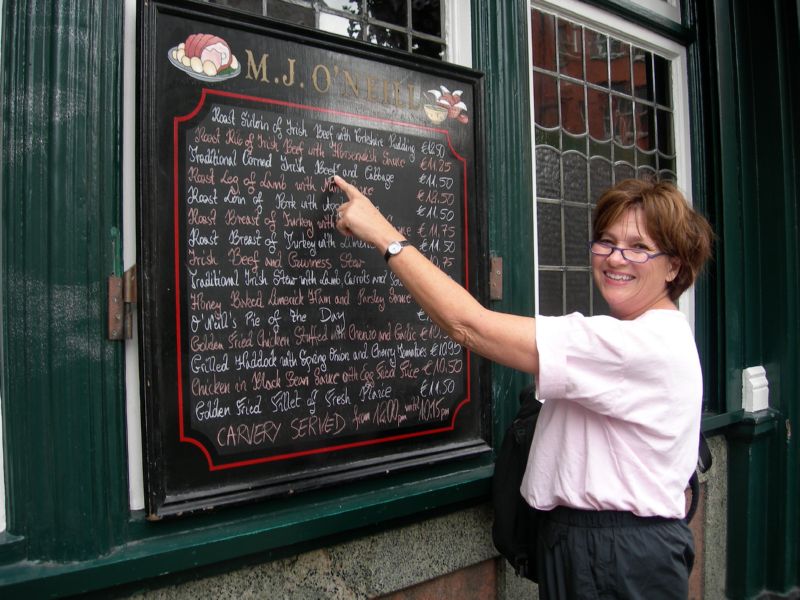 M.J. O'NEILL
Roast Sirloin of Irish Beef with Yorkshire Pudding €12.50
Roast Rib of Irish Beef with Horseradish Sauce €11.25
Traditional Corned Irish Beef and Cabbage €11.50
Roast Leg of Lamb with Mint Sauce €12.50
Roast Loin of Pork with €11.50
Roast Breast of Turkey with €11.75
Roast Breast of Turkey with Limerick €11.50
Irish Beef and Guinness Stew 10.75
Traditional Irish Stew with Lamb, Carrots and
Honey Baked Limerick Ham and Parsley Sauce
O'Neill's Pie of the Day
Golden Fried Chicken Stuffed with Chorizo and Garlic
Grilled Haddock with Spring Onion and Cherry Tomatoes €10.95
Chicken in Black Bean Sauce with Egg Fried Rice €10.50
Golden Fried Fillet of Fresh Plaice €11.50
CARVERY SERVED from 12.00pm until 10.15pm